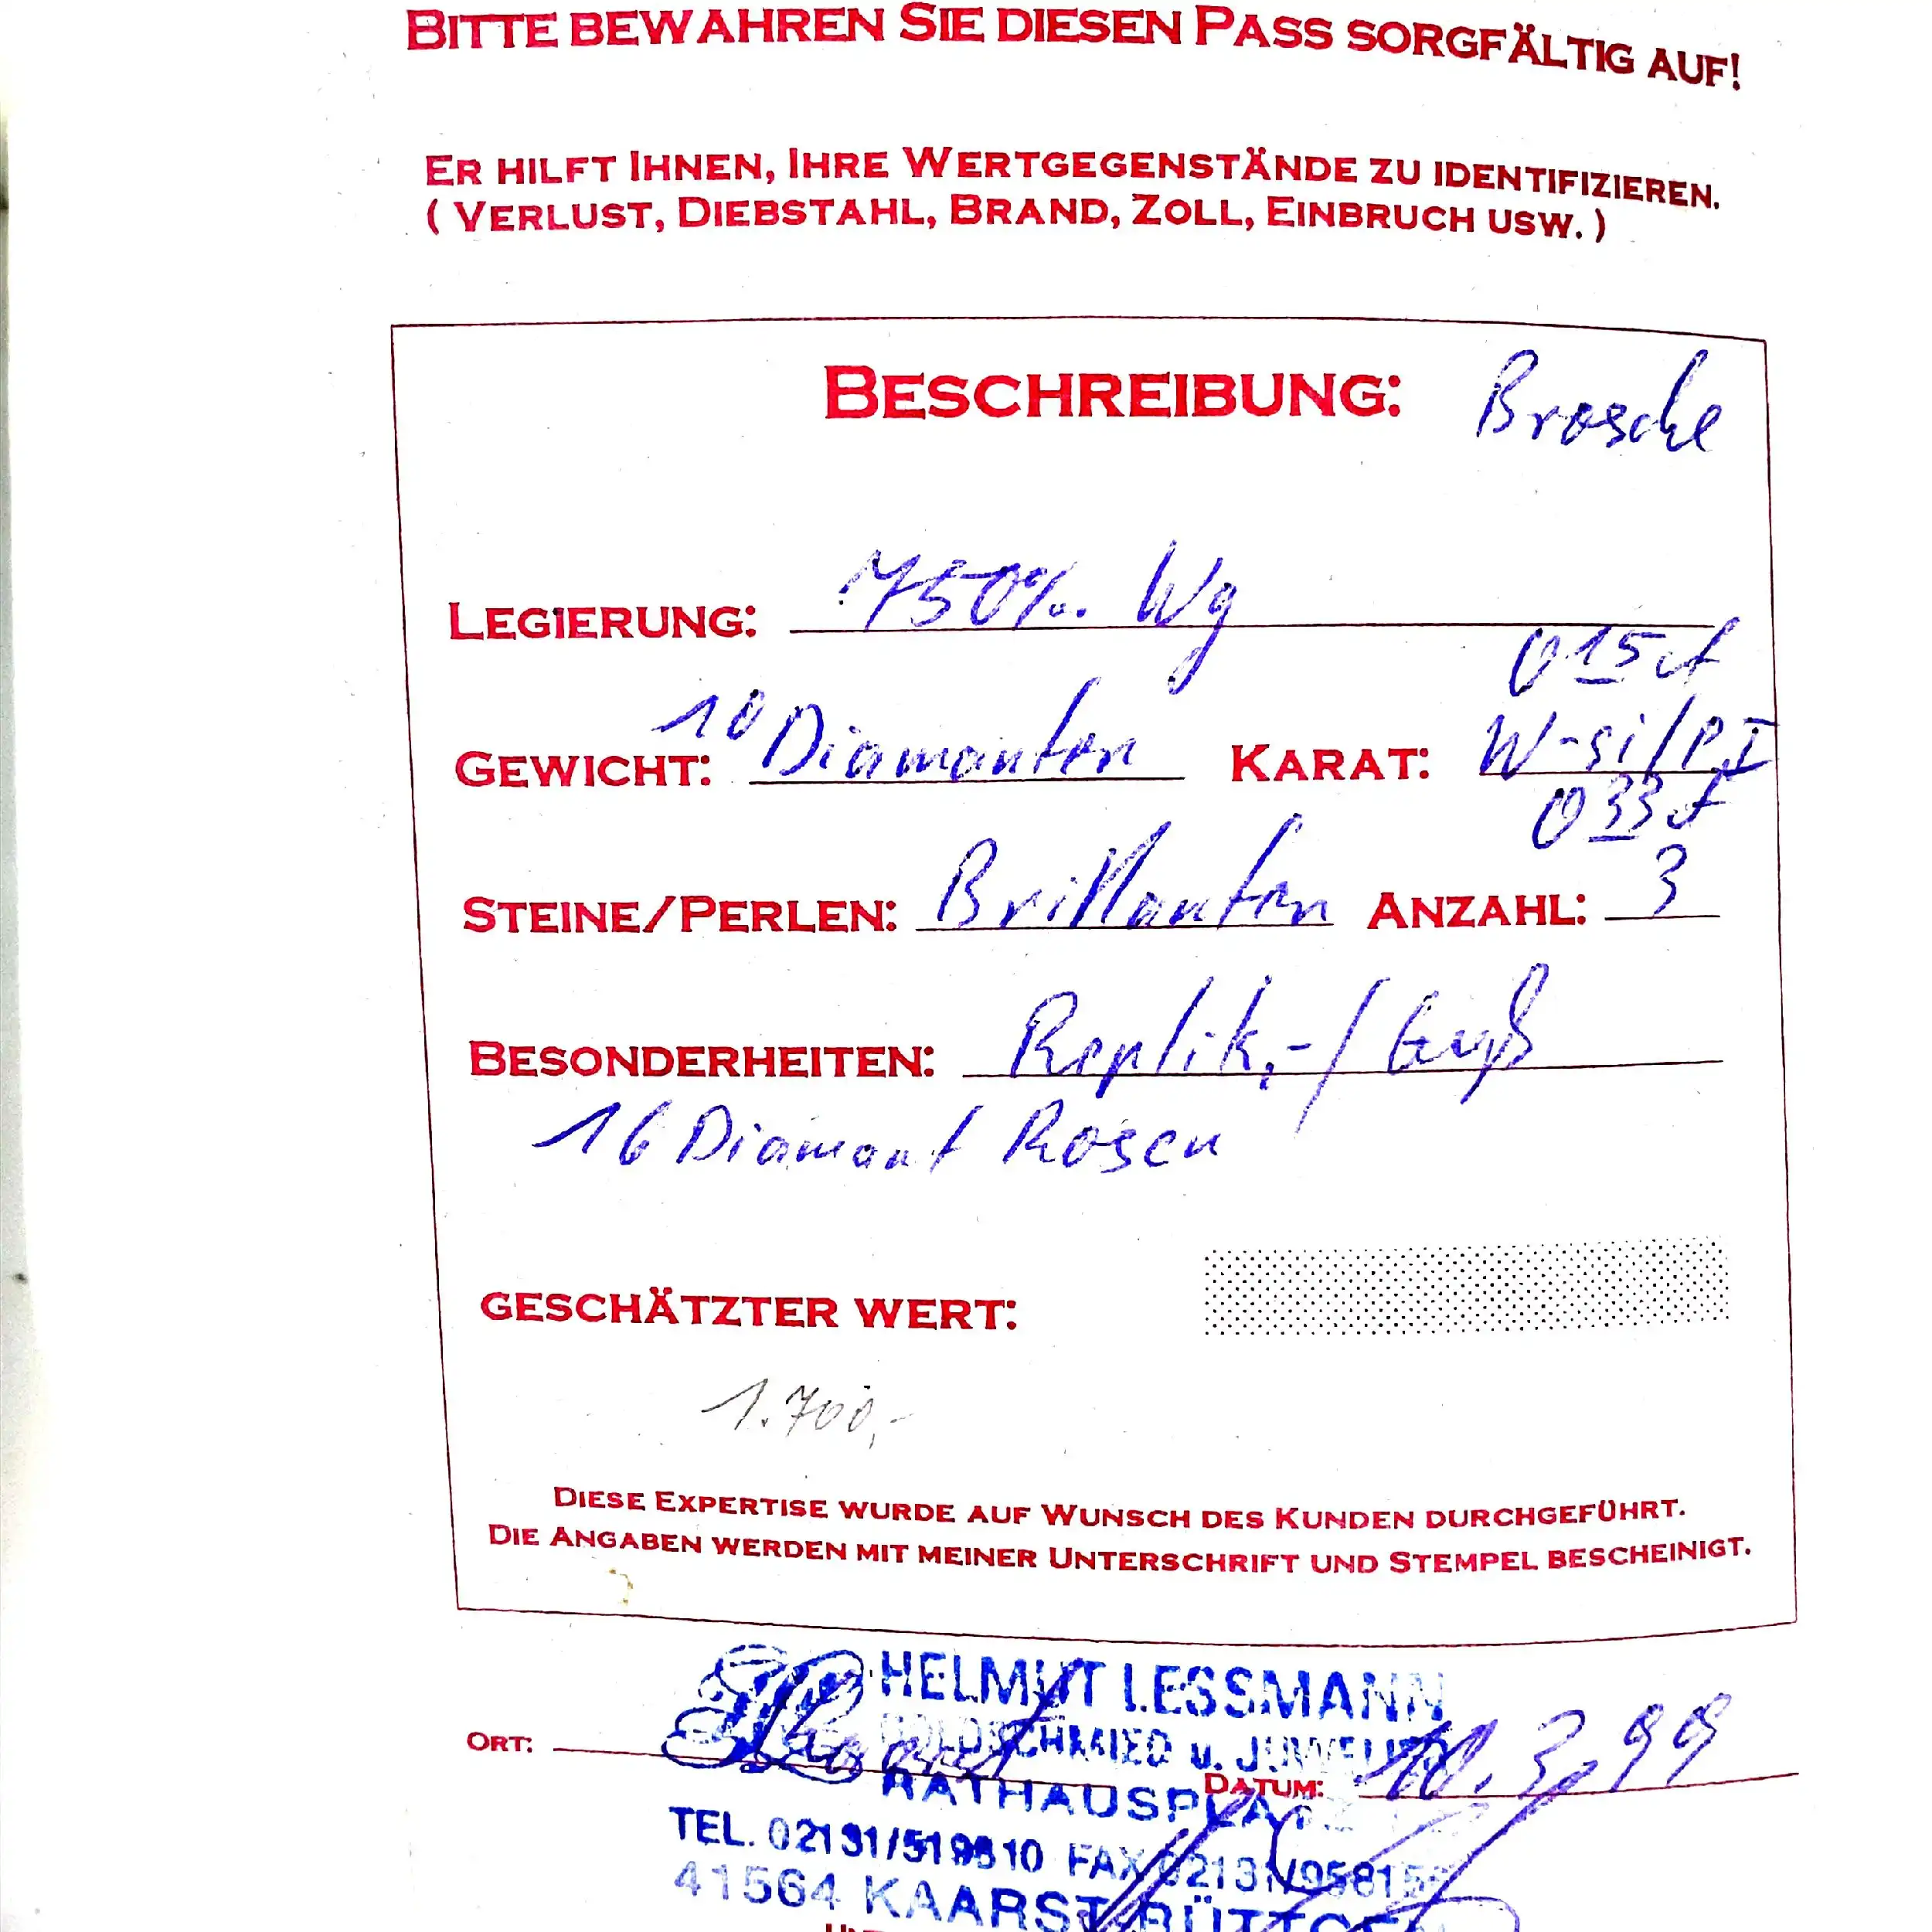 BITTE BEWAHREN SIE DIESEN PASS SORGFÄLTIG AUF!
ER HILFT IHNEN, IHRE WERTGEGENSTÄNDE ZU IDENTIFIZIEREN.
( VERLUST, DIEBSTAHL, BRAND, ZOLL, EINBRUCH USW. )
BESCHREIBUNG: Brosche
LEGIERUNG: 750‰ Wg
015 ct
GEWICHT: 10 Diamanten KARAT: W-si/P.I
033 ct
STEINE/PERLEN: Brillanten ANZAHL: 3
BESONDERHEITEN: Replik,-/Guß
16 Diamant Rosen
GESCHÄTZTER WERT:
1.700,-
DIESE EXPERTISE WURDE AUF WUNSCH DES KUNDEN DURCHGEFÜHRT.
DIE ANGABEN WERDEN MIT MEINER UNTERSCHRIFT UND STEMPEL BESCHEINIGT.
HELMUT LESSMANN
GOLDSCHMIED u. JUWELIER
ORT: DATUM: 10.3.99
RATHAUSPLATZ
TEL. 02131/519810 FAX 02131/958155
41564 KAARST BÜTTGEN